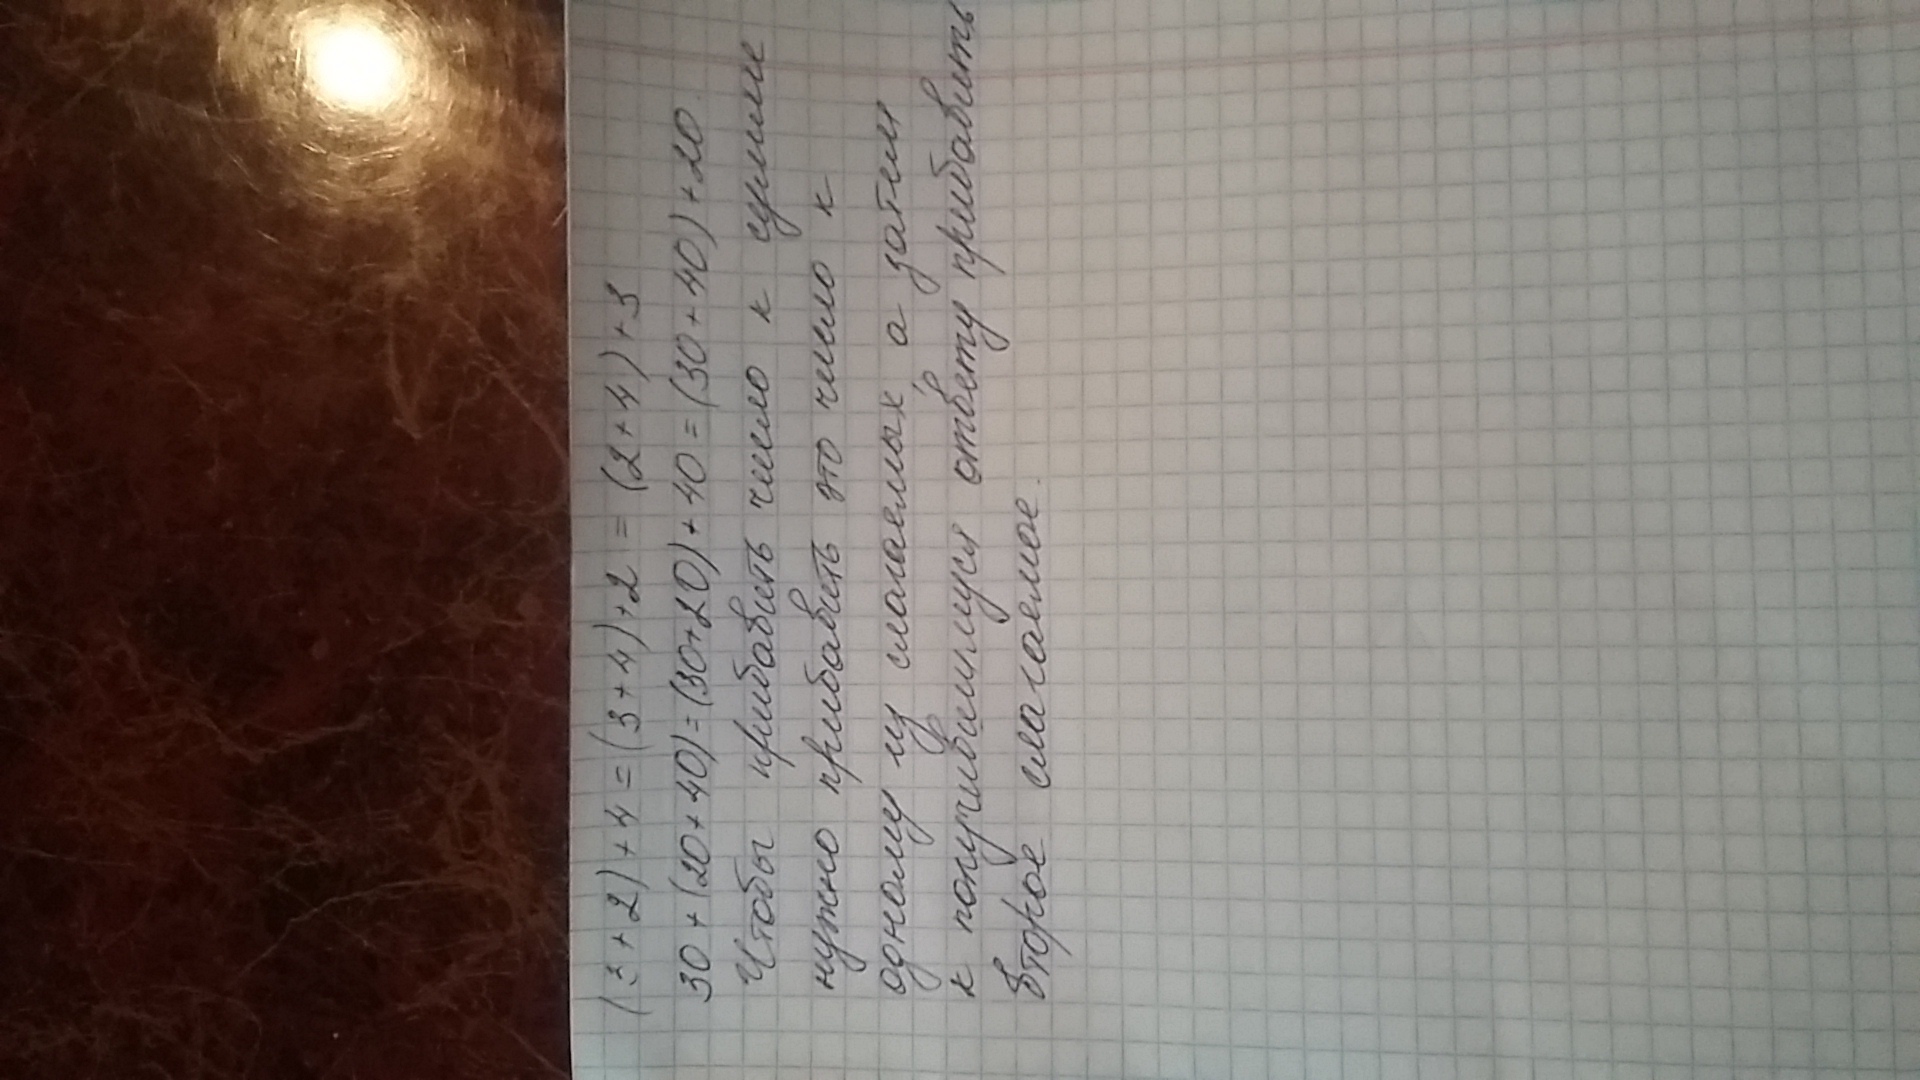 (3+2)+4=(3+4)+2=(2+4)+3
30+(20+40)=(30+20)+40=(30+40)+20.
Чтобы прибавить число к сумме
нужно прибавить это число к
одному из слагаемых, а затем
к получившемуся ответу прибавить
второе слагаемое.